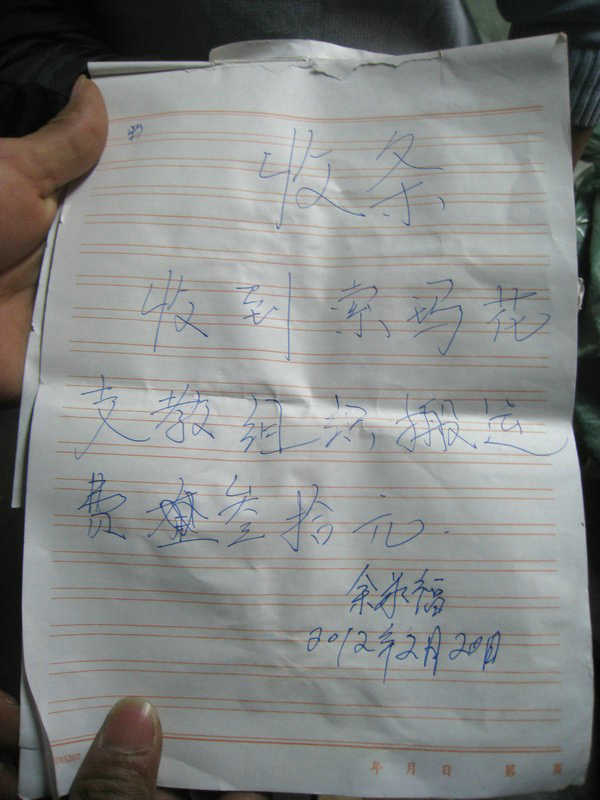 收条
收到索玛花
支教组织搬运
费叁拾元.
余永福
2012年2月20日
年 月 日 第 页